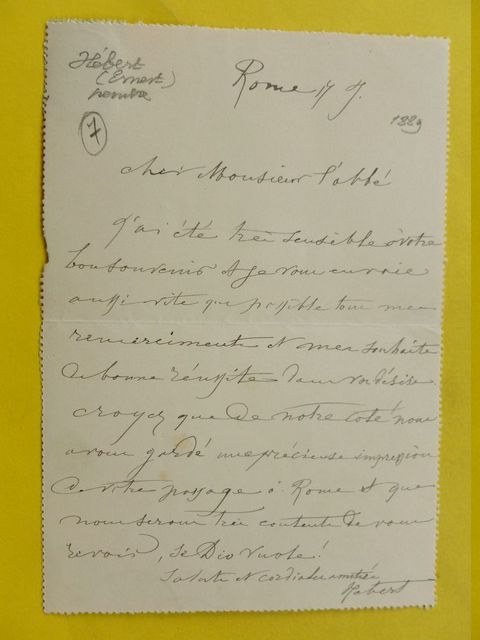 Hébert
(Ernest)
peintre
7
Rome 17 J.
1889
cher Monsieur l'abbé
J'ai été très sensible à votre
bon souvenir & je vous envoie
aussi vite que possible tous mes
remerciments et mes souhaits
de bonne réussite dans vos désirs.
croyez que de notre côté nous
avons gardé une précieuse impression
de votre passage à Rome & que
nous serons très contents de vous
revoir, se Dio vuole!
Saluts et cordiales amitiés
Hebert